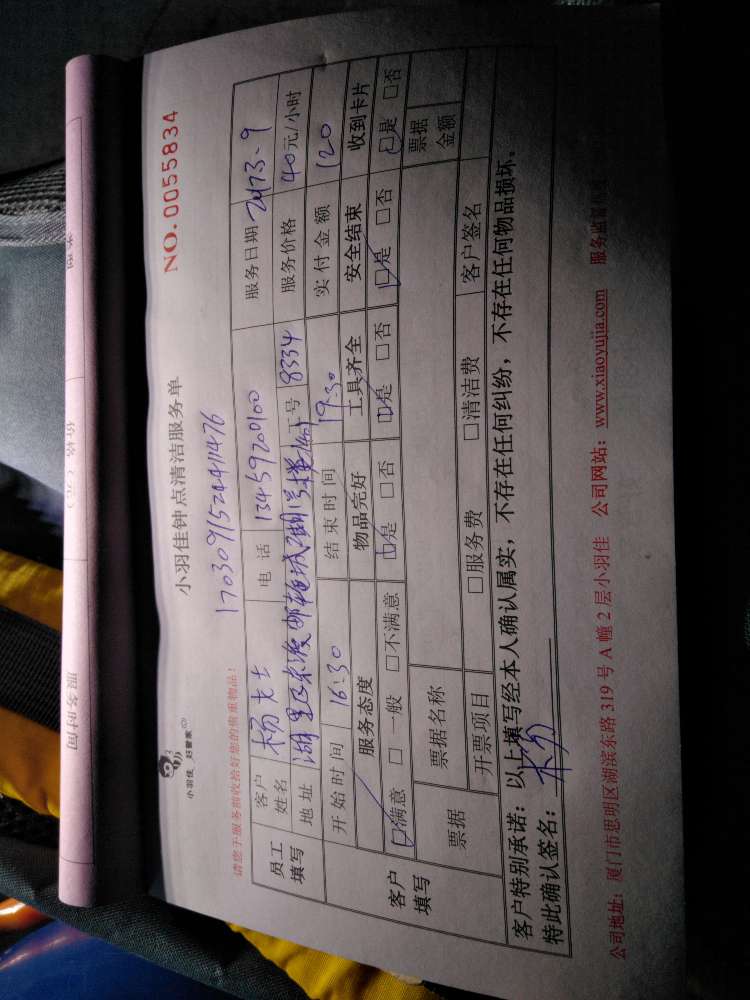 小羽佳钟点清洁服务单
NO. 0055834
小羽佳 好管家
请您于服务前收拾好您的贵重物品！
员工填写
客户姓名 杨女士 电话 13459200100 服务日期 2017.3.9
地址 湖里区 工号 8334 服务价格 40元/小时
开始时间 16:30 结束时间 19:30 实付金额 120
客户填写
服务态度 物品完好 工具齐全 安全结束 收到卡片
☑满意 □一般 □不满意 ☑是 □否 ☑是 □否 ☑是 □否 ☑是 □否
票据 票据名称 票据金额
开票项目 □服务费 □清洁费 客户签名
客户特别承诺：以上填写经本人确认属实，不存在任何纠纷，不存在任何物品损坏。
特此确认签名：
公司地址：厦门市思明区湖滨东路 319 号 A 幢 2 层小羽佳 公司网站：www.xiaoyujia.com 服务监督
服务时间